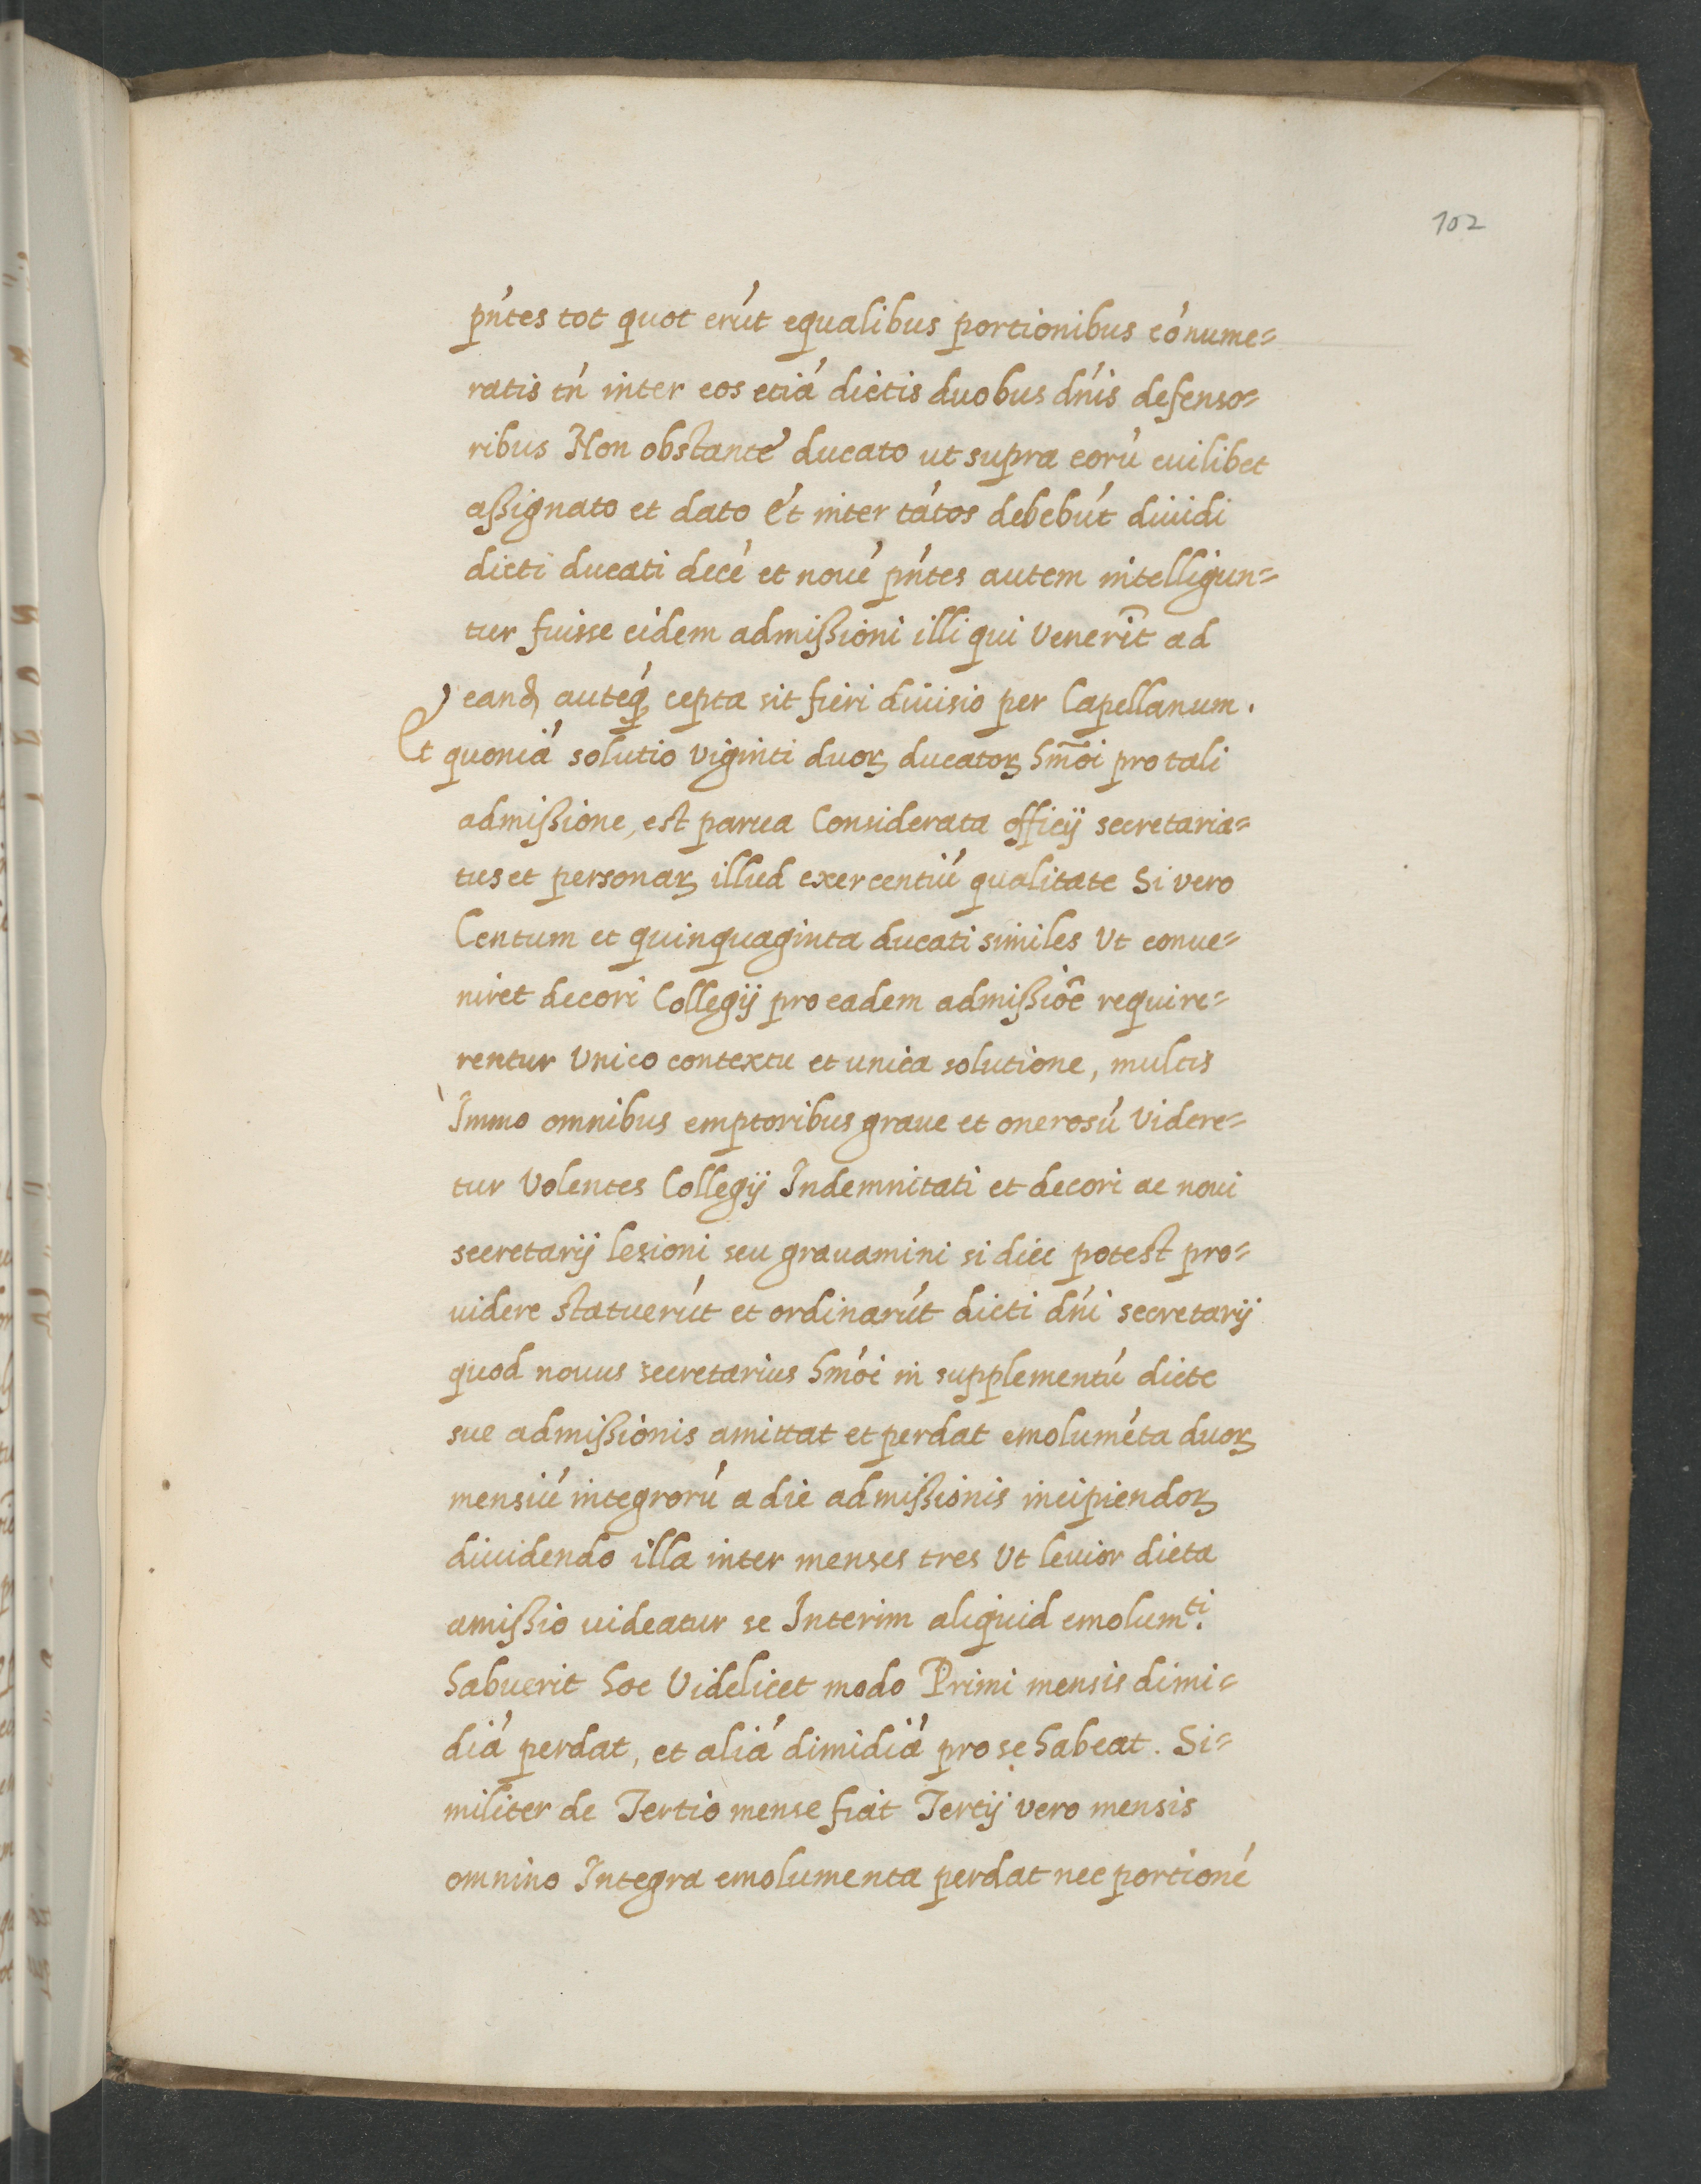 102
pńtes tot quot erút equalibus portionibus cónume=
ratis tń inter eos etiá dictis duobus dńis defenso=
ribus Non obstante ducato ut supra eorú cuilibet
aßignato et dato Et inter tátos debebút diuidi
dicti ducati decé et noué pńtes autem intelligun=
tur fuisse eidem admißioni illi qui venerĩt ad
eanđ anteq́ cepta sit fieri diuisio per Capellanum.
Et quoniá solutio viginti duoꝝ ducatoꝝ hm̃oi pro tali
admißione, est parua Considerata officij secretaria=
tus et personaꝝ illud exercentiú qualitate Si vero
Centum et quinquaginta ducati similes Ut conue=
niret decori Collegij pro eadem admißiõe require=
rentur Unico contextu et unica solutione, multis
Immo omnibus emptoribus graue et onerosú videre=
tur Volentes Collegij Indemnitati et decori ac noui
secretarij lesioni seu grauamini si dici potest pro=
uidere statuerút et ordinarút dicti dńi secretarij
quod nouus secretarius hḿoi in supplementú dicte
sue admißionis amittat et perdat emoluméta duoꝝ
mensiú integrorú a die admißionis incipiendoꝝ
diuidendo illa inter menses tres Ut leuior dicta
amißio uideatur se Interim aliquid emolum.ti
habuerit hoc Videlicet modo Primi mensis dimi=
diá perdat, et aliá dimidiá pro se habeat. Si=
militer de Tertio mense fiat Tertij vero mensis
omnino Integra emolumenta perdat nec portioné